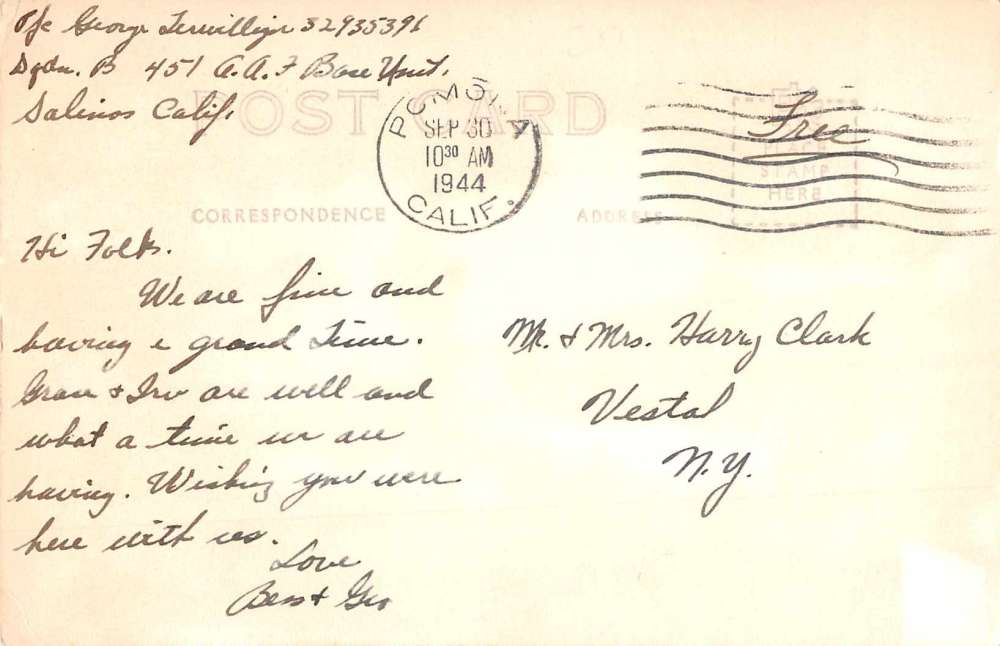 Pfc George Terwilliger 32935396
Sqdn. B 451 A.A.F Base Unit.
Salinas Calif.
POST CARD
POMONA
SEP 30
10 30 AM
1944
CALIF.
Free
PLACE
STAMP
HERE
CORRESPONDENCE
ADDRESS
Hi Folks.
We are fine and
having a grand time.
Grace & Irv are well and
what a time we are
having. Wishing you were
here with us.
Love
Bess & Geo
Mr. & Mrs. Harry Clark
Vestal
N.Y.